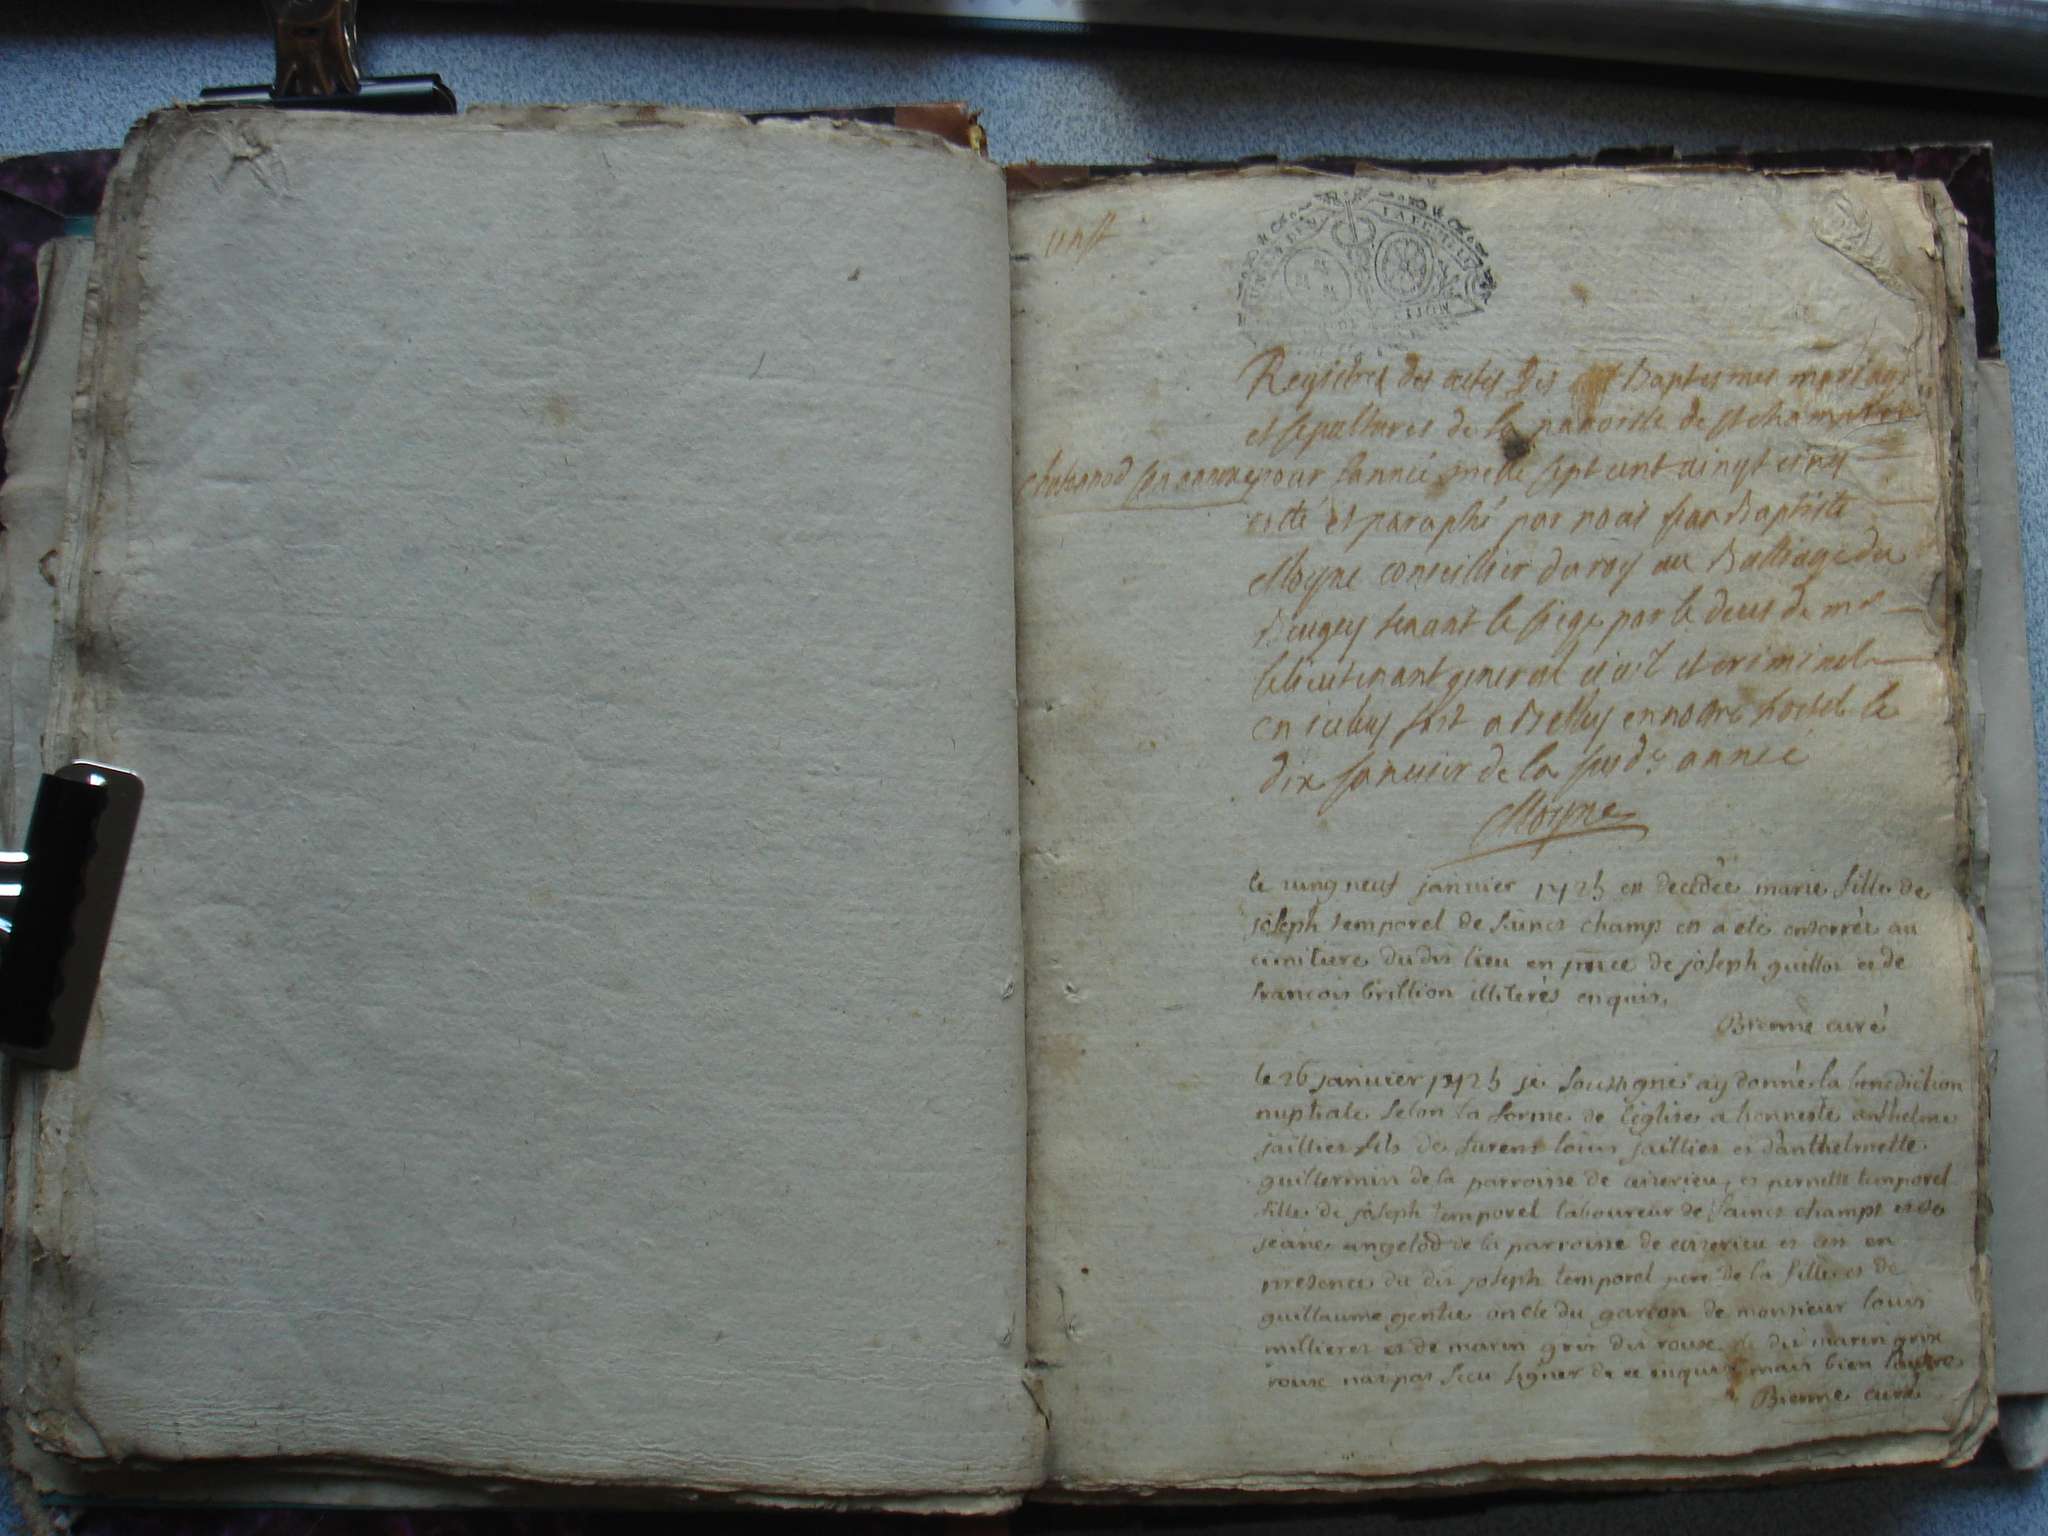 Registres des actes des Baptesmes mariages
et sepultures de la paroisse de st champt
chasannod son annexe pour lannée mille sept cent vingt cinq
cotté et paraphé par nous jean Baptiste
Moyne conseillier du roy au Balliage du
Beugey tenant le siege par le deces de mr
le lieutenant general civil et criminel
en iceluy fait a Belley en nostre hostel le
dix janvier de la susde année
Moyne
le ving neuf janvier 1725 est decedée marie fille de
joseph temporel de sainct champ et a eté enterrée au
cimitiere du dit lieu en pnce de joseph guillot et de
francois brillion illiterés enquis.
Bienne curé
le 26 janvier 1725 je soussigné ay donné la benediction
nuptiale selon la forme de l'église a honneste anthelme
jaillier fils de furent louis jaillier et d'anthelmette
guillermin de la parroisse de ceizerieu, et pernette temporel
fille de joseph temporel laboureur de sainct champt et de
jeane angelod de la parroisse de ceizerieu et ces en
presence du dit joseph temporel pere de la fille et de
guillaume gentie oncle du garcon de monsieur louis
millieret et de marin grix dit roux le dit marin grix
roux n'ai pas sceu signer de ce enquis mais bien l'autre
Bienne curé